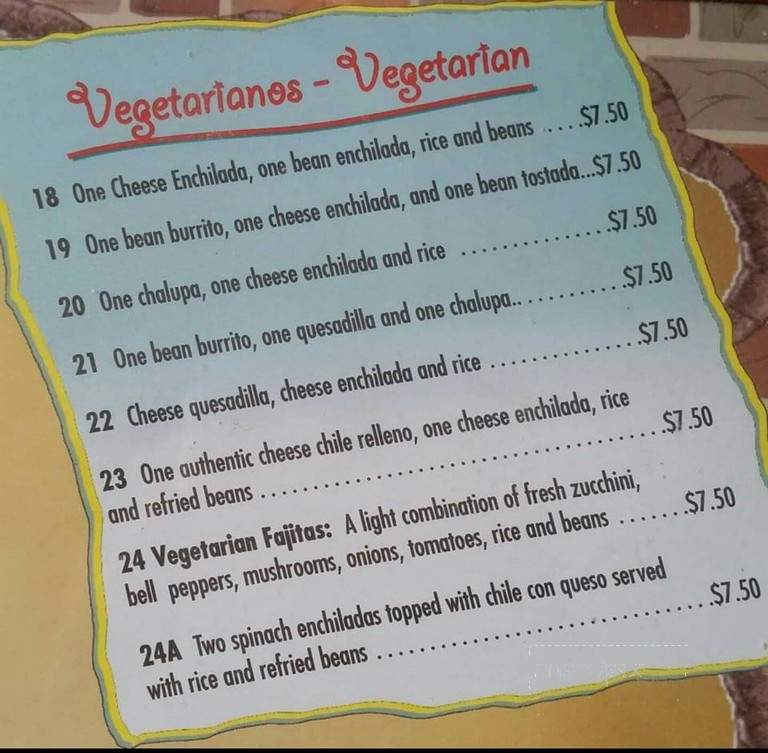 Vegetarianos - Vegetarian
18 One Cheese Enchilada, one bean enchilada, rice and beans ....$7.50
19 One bean burrito, one cheese enchilada, and one bean tostada...$7.50
20 One chalupa, one cheese enchilada and rice ..............$7.50
21 One bean burrito, one quesadilla and one chalupa...........$7.50
22 Cheese quesadilla, cheese enchilada and rice ..............$7.50
23 One authentic cheese chile relleno, one cheese enchilada, rice
and refried beans ......................................$7.50
24 Vegetarian Fajitas: A light combination of fresh zucchini,
bell peppers, mushrooms, onions, tomatoes, rice and beans .......$7.50
24A Two spinach enchiladas topped with chile con queso served
with rice and refried beans ................................$7.50